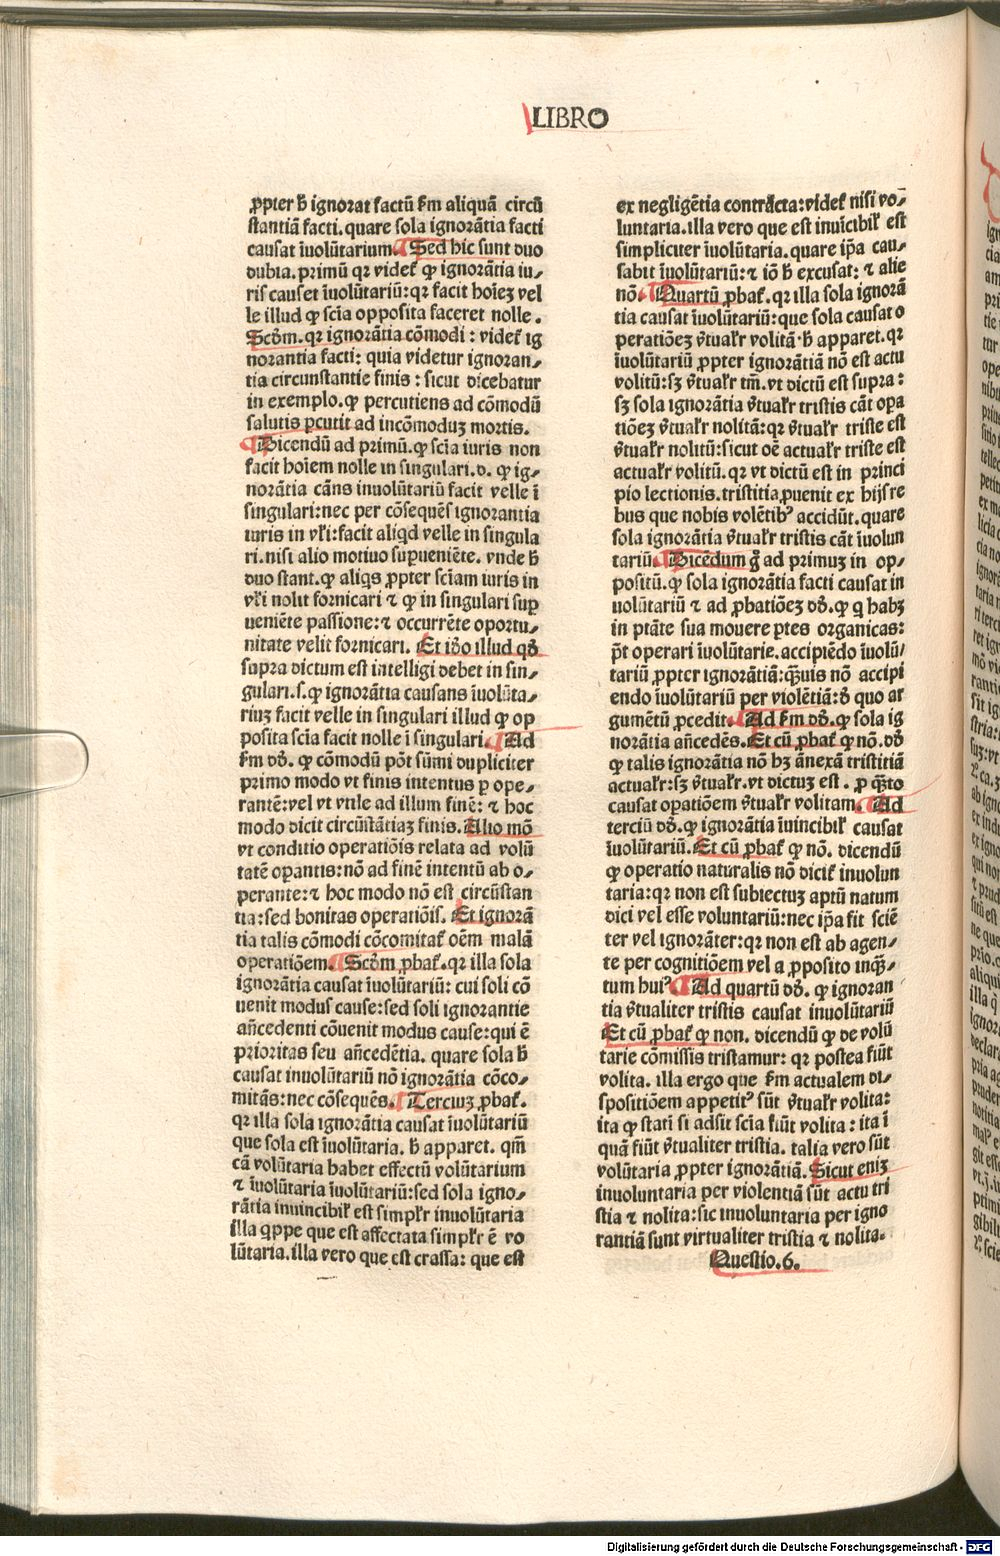 LIBRO
ꝓpter ħ ignorat factū ẜm aliquā circū
stantiā facti. quare sola ignorātia facti
causat īuolūtarium. Sed hic sunt duo
dubia. primū qꝛ videt̄ ꝙ ignorātia iu⸗
ris causet īuolūtariū: qꝛ facit hoīeꝫ vel
le illud ꝙ scīa opposita faceret nolle.
Scd̓m. qꝛ ignorātia cōmodi: videt̄ ig
norantia facti: quia videtur ignoran⸗
tia circunstantie finis: sicut dicebatur
in exemplo. ꝙ percutiens ad cōmodū
salutis ꝑcutit ad incōmoduꝫ mortis.
Dicendū ad primū. ꝙ scīa iuris non
facit hoīem nolle in singulari. d. ꝙ ig⸗
norātia cāns inuolūtariū facit velle ī
singulari: nec per cōsequēs ignorantia
iuris in vłi: facit aliqd velle in singula
ri. nisi alio motiuo suꝑueniēte. vnde ħ
duo stant. ꝙ aliqs ꝓpter sciam iuris in
vłi nolit fornicari ⁊ ꝙ in singulari suꝑ
ueniēte passione: ⁊ occurrēte oportu⸗
nitate velit fornicari. Et iđo illud qđ
supra dictum est intelligi debet in sin⸗
gulari. s. ꝙ ignorātia causans īuolūta⸗
riuꝫ facit velle in singulari illud ꝙ op
posita scīa facit nolle ī singulari. Ad
ẜm dđ. ꝙ cōmodū pōt sūmi dupliciter
primo modo vt finis intentus ꝑ ope⸗
rantē: vel vt vtile ad illum finē: ⁊ hoc
modo dicit circūstātiaꝫ finis. Alio mō
vt conditio operatiōis relata ad volū
tatē oꝑantis: nō ad finē intentū ab o⸗
perante: ⁊ hoc modo nō est circūstan
tia: sed bonitas operatiōis. Et ignorā
tia talis cōmodi cōcomitat̄ oēm malā
operatiōem. Scd̓m ꝓbat̄. qꝛ illa sola
ignorātia causat īuolūtariū: cui soli cō
uenit modus cause: sed soli ignorantie
añcedenti cōuenit modus cause: qui ē
prioritas seu añcedētia. quare sola ħ
causat inuolūtariū nō ignorātia cōco⸗
mitās: nec cōsequēs. Terciuꝫ ꝓbat̄.
qꝛ illa sola ignorātia causat īuolūtariū
que sola est īuolūtaria. ħ apparet. qm̄
cā volūtaria habet effectū voluntarium
⁊ īuolūtaria īuolūtariū: sed sola igno⸗
rātia inuincibił est simpłr inuolūtaria
illa qppe que est affectata simpłr ē vo
lūtaria. illa vero que est crassa: que est
ex negligētia contracta: videt̄ nisi vo⸗
luntaria. illa vero que est inuīcibił est
simpliciter īuolūtaria. quare īpa cau⸗
sabit īuolūtariū: ⁊ iō ħ excusat: ⁊ alie
nō. Quartū ꝓbat̄. qꝛ illa sola ignorā
tia causat īuolūtariū: que sola causat o
peratiōeꝫ v̓tuałr volitā. ħ apparet. qꝛ
īuolūtariū ꝓpter ignorātiā nō est actu
volitū: sꝫ v̓tuałr tm̄. vt dictū est supra:
sꝫ sola ignorātia v̓tuałr tristis cāt oꝑa
tiōeꝫ v̓tuałr nolitā: qꝛ v̓tuałr triste est
v̓tuałr nolitū: sicut oē actuałr triste est
actuałr volitū. qꝛ vt dictū est in princi
pio lectionis. tristitia ꝓuenit ex hijs re
bus que nobis volētibꝰ accidūt. quare
sola ignorātia v̓tuałr tristis cāt īuolun
tariū. Dicēdum g̊ ad primuꝫ in op⸗
positū. ꝙ sola ignorātia facti causat in
uolūtariū ⁊ ad ꝓbatiōeꝫ dđ. ꝙ q habꝫ
in ptāte sua mouere ꝑtes organicas:
pōt operari īuolūtarie. accipiēdo īuolū⸗
tariū ꝓpter ignorātiā: quis nō accipi
endo īuolūtariū per violētiā: đ quo ar
gumētū ꝓcedit. Ad ẜm dđ. ꝙ sola ig
norātia añcedēs. Et cū ꝓbat̄ ꝙ nō. dđ
ꝙ talis ignorātia nō hꝫ ānexā tristitiā
actuałr: sꝫ v̓tuałr. vt dictuꝫ est. ꝓ qto
causat oꝑatiōem v̓tuałr volitam. Ad
terciū dđ. ꝙ ignorātia īuincibił causat
īuolūtariū. Et cū ꝓbat̄ ꝙ nō. dicendū
ꝙ operatio naturalis nō dicit̄ inuolun
taria: qꝛ non est subiectuꝫ aptū natum
dici vel esse voluntariū: nec īpa fit sciē
ter vel ignorāter: qꝛ non est ab agen⸗
te per cognitiōem vel a ꝓposito inq⸗
tum huiꝰ. Ad quartū dđ. ꝙ ignoran
tia v̓tualiter tristis causat inuolūtariū
Et cū ꝓbat̄ ꝙ non. dicendū ꝙ de volū
tarie cōmissis tristamur: qꝛ postea fiūt
volita. illa ergo que ẜm actualem di⸗
spositiōem appetitꝰ sūt v̓tuałr volita:
ita ꝙ statī si adsit scīa fiūt volita: ita ī
quā fiūt v̓tualiter tristia. talia vero sūt
volūtaria ꝓpter ignorātiā. Sicut eniꝫ
inuoluntaria per violentiā sūt actu tri
stia ⁊ nolita: sic inuoluntaria per igno
rantiā sunt virtualiter tristia ⁊ nolita.
Questio. 6.
Digitalisierung gefördert durch die Deutsche Forschungsgemeinschaft - DFG